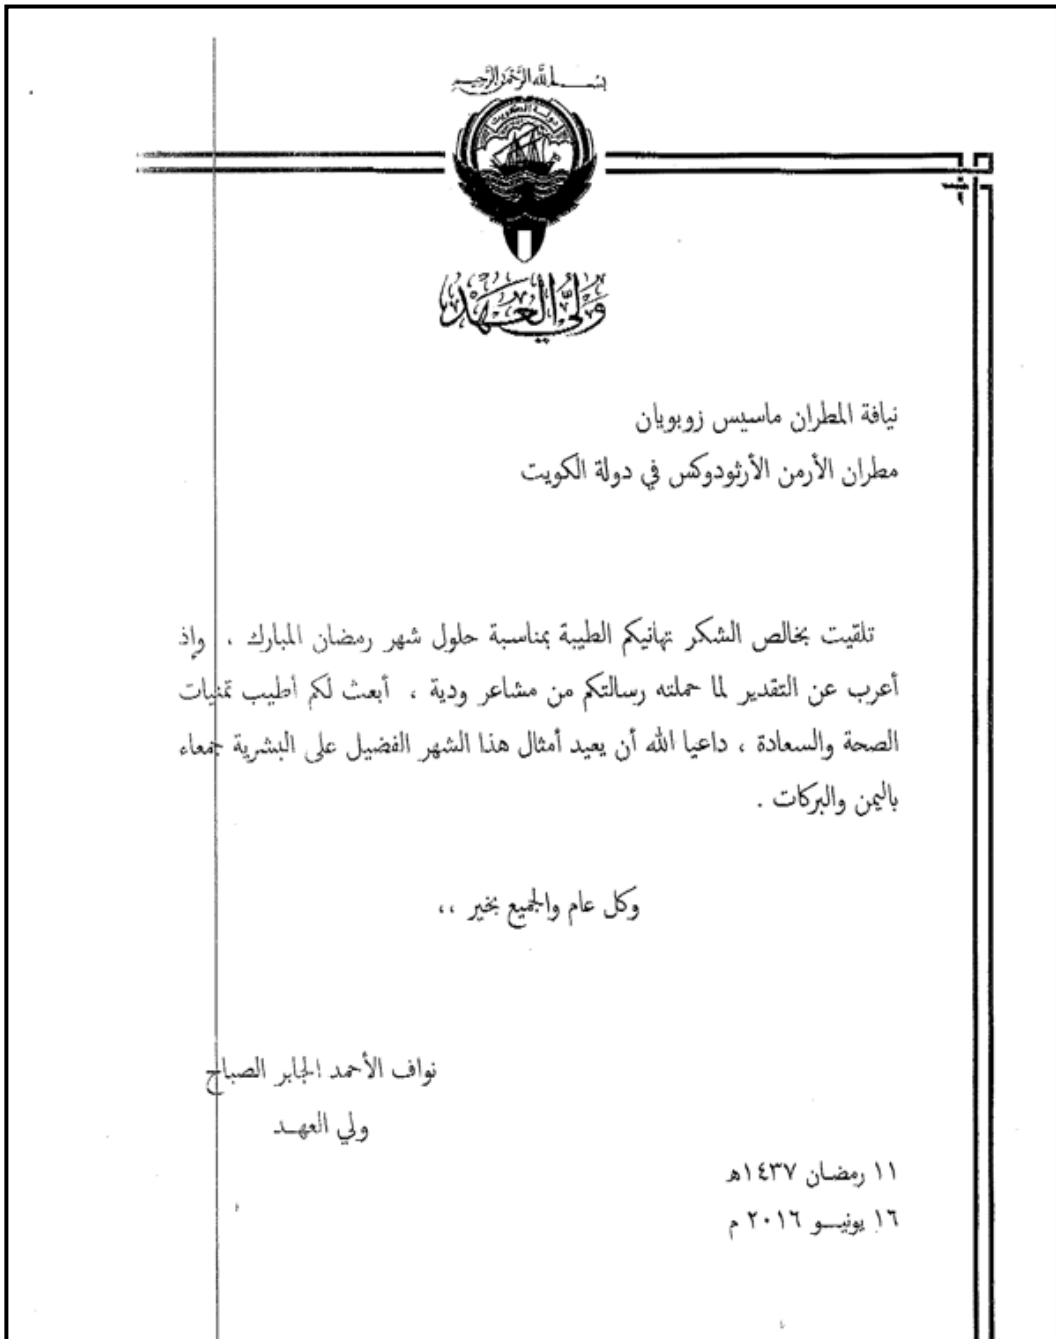 بسم الله الرحمن الرحيم
دولة الكويت
ولي العهد
نيافة المطران ماسيس زوبويان
مطران الأرمن الأرثودوكس في دولة الكويت
تلقيت بخالص الشكر تهانيكم الطيبة بمناسبة حلول شهر رمضان المبارك . وإذ
أعرب عن التقدير لما حملته رسالتكم من مشاعر ودية ، أبعث لكم أطيب تمنيات
الصحة والسعادة ، داعيا الله أن يعيد أمثال هذا الشهر الفضيل على البشرية جمعاء
باليمن والبركات .
وكل عام والجميع بخير ،،
نواف الأحمد الجابر الصباح
ولي العهـد
١١ رمضان ١٤٣٧هـ
١٦ يونيـو ٢٠١٦ م